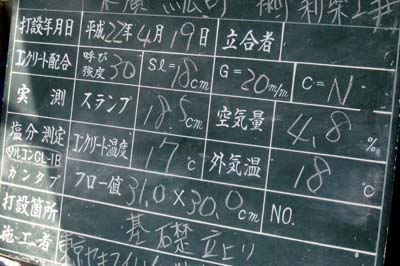 打設年月日 平成22年4月19日 立合者
コンクリート配合 呼び強度 30 Sl=18cm G=20m/m C=N
実測 スランプ 18.5cm 空気量 4.8%
塩分測定 コンクリート温度 17℃ 外気温 18℃
ソルコンCL-1B
カンタブ フロー値 31.0×30.0cm NO.
打設箇所 基礎立上り
施工者